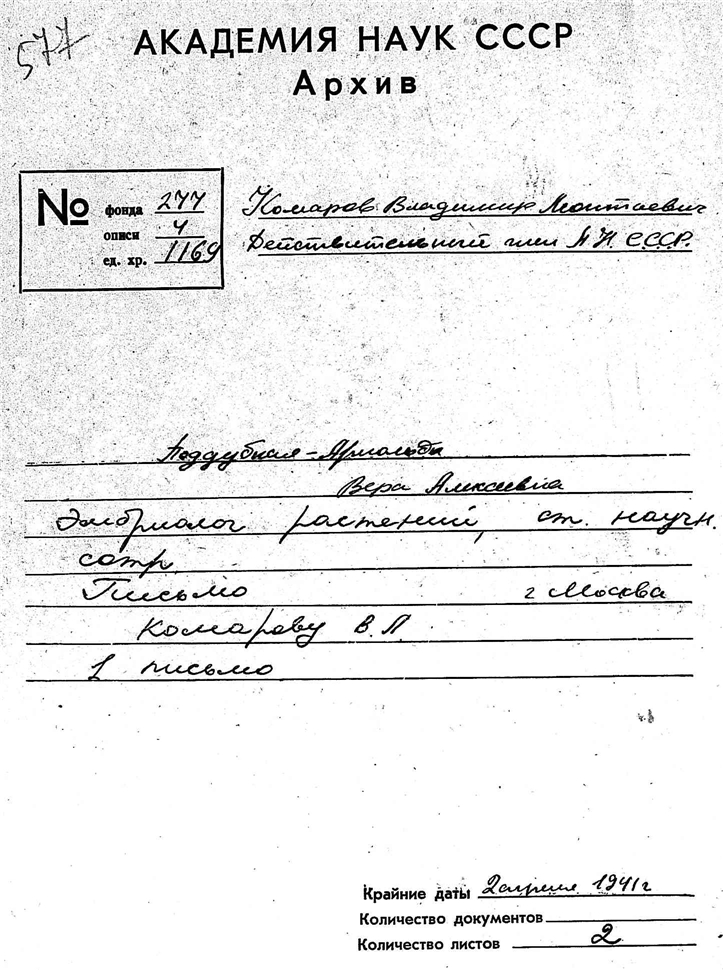 577
АКАДЕМИЯ НАУК СССР
Архив
№ фонда 277
описи 4
ед. хр. 1169
Комаров Владимир Леонтьевич
Действительный член АН СССР.
Поддубная-Арнольди
Вера Алексеевна
Эмбриолог растений, ст. научн.
сотр.
Письмо г Москва
Комарову В.Л
1 письмо
Крайние даты 2 апреля 1941 г
Количество документов
Количество листов 2